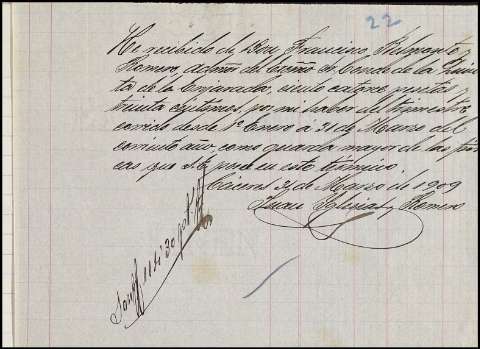 22
He recibido de Don Francisco Belmonte y
Romero, admor del Excmo Sr. Conde de la Quin-
ta de la Enjarada, ciento catorce pesetas y
treinta céntimos, por mi haber del trimestre
corrido desde 1º Enero á 31 de Marzo del
corriente año, como guarda mayor de las fin-
cas que S.E. posee en este término.
Cáceres 31 de Marzo de 1909
Juan Iglesias y Romero
Son 114'30 pts.